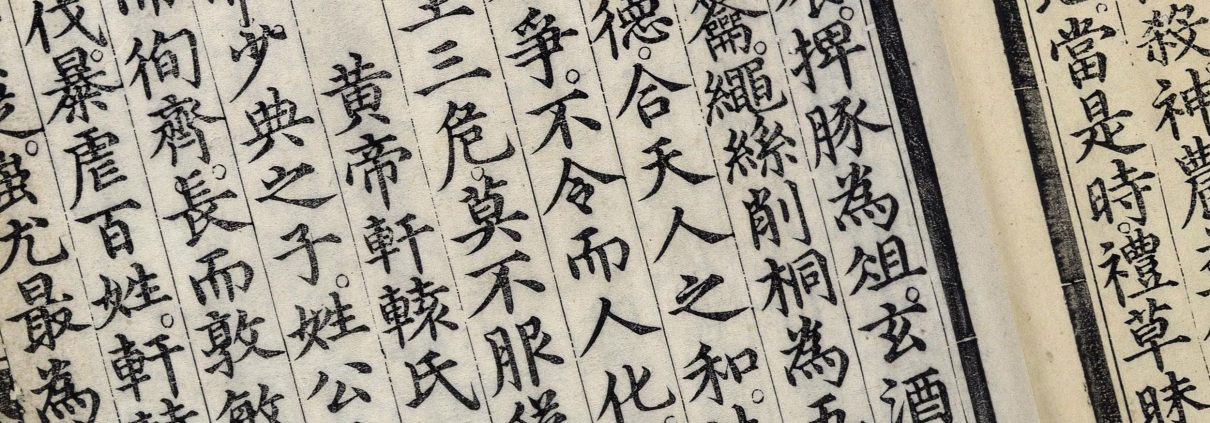 殺神農
當是時。禮草昧
捭豚為俎。玄酒
籥。繩絲削桐為
德。合天人之和。
爭。不令而人化。
至三危。莫不服從
黄帝軒轅氏
少典之子。姓公
徇齊。長而敦敏
伐。暴虐百姓。軒
蚩尤最為